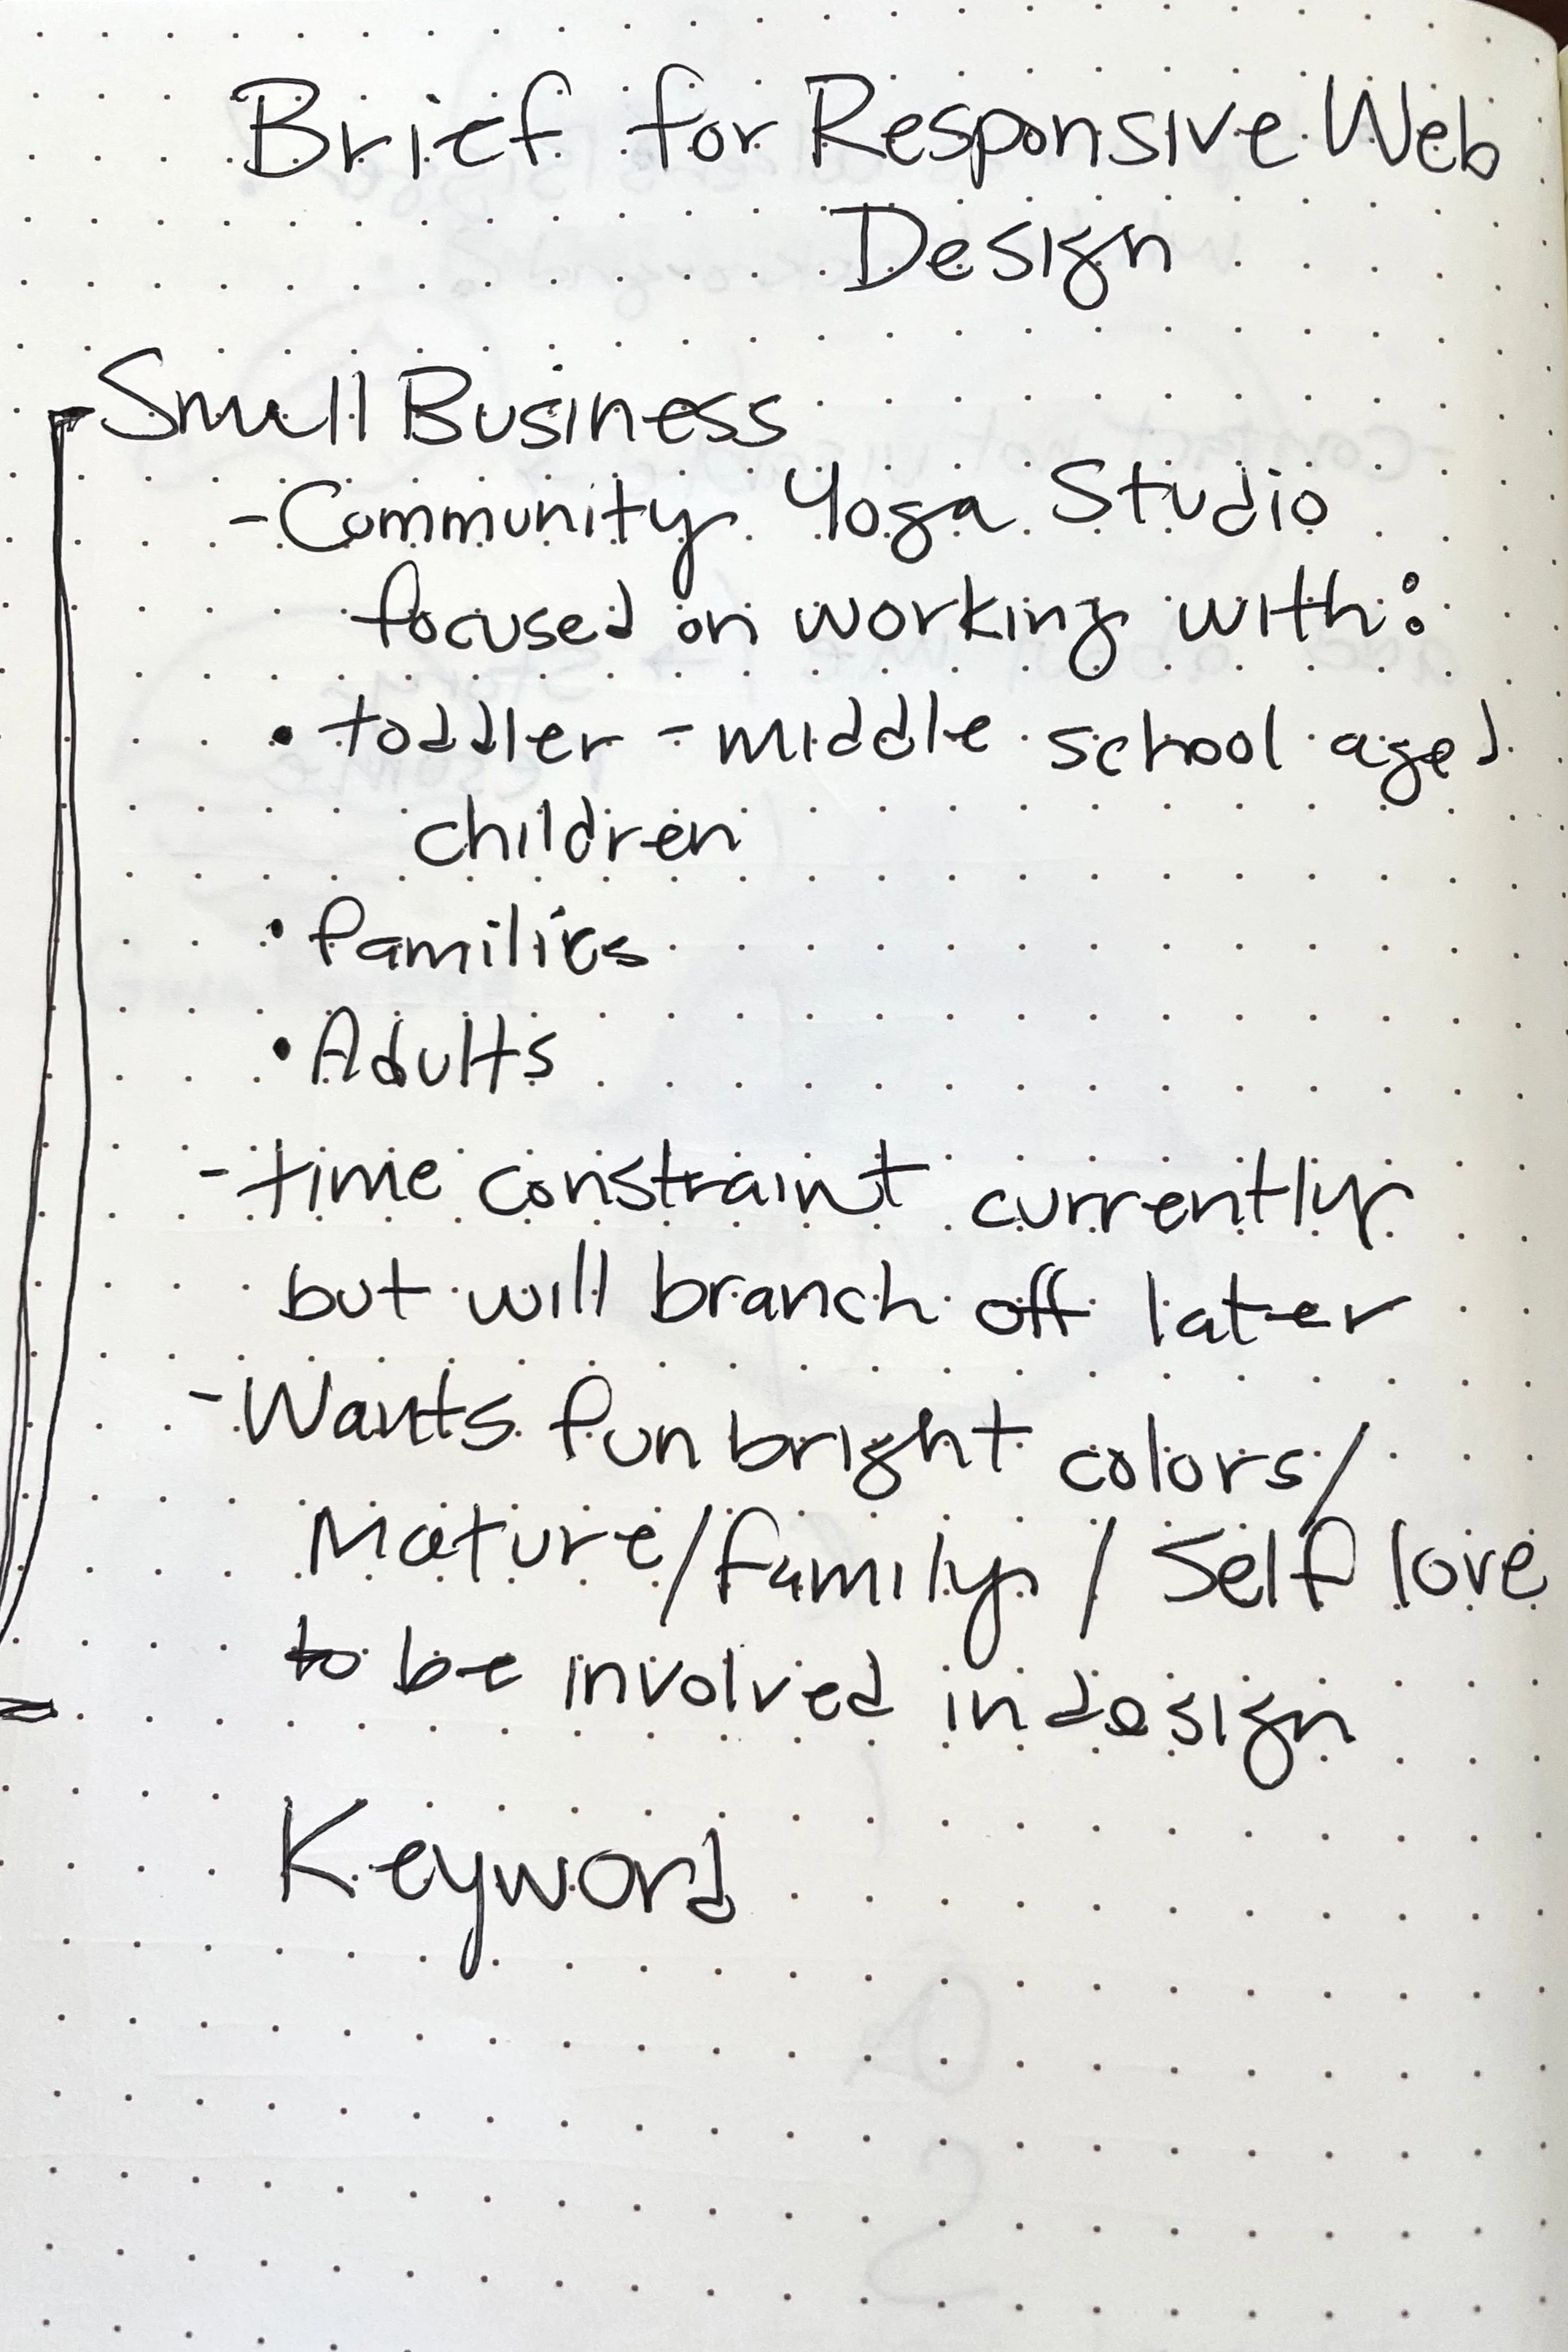 Brief for Responsive Web
Design
-Small Business
-Community Yoga Studio
focused on working with:
• toddler - middle school aged
children
• families
• Adults
- time constraint currently
but will branch off later
- Wants fun bright colors/
Mature/family/Self love
to be involved in design
Keyword